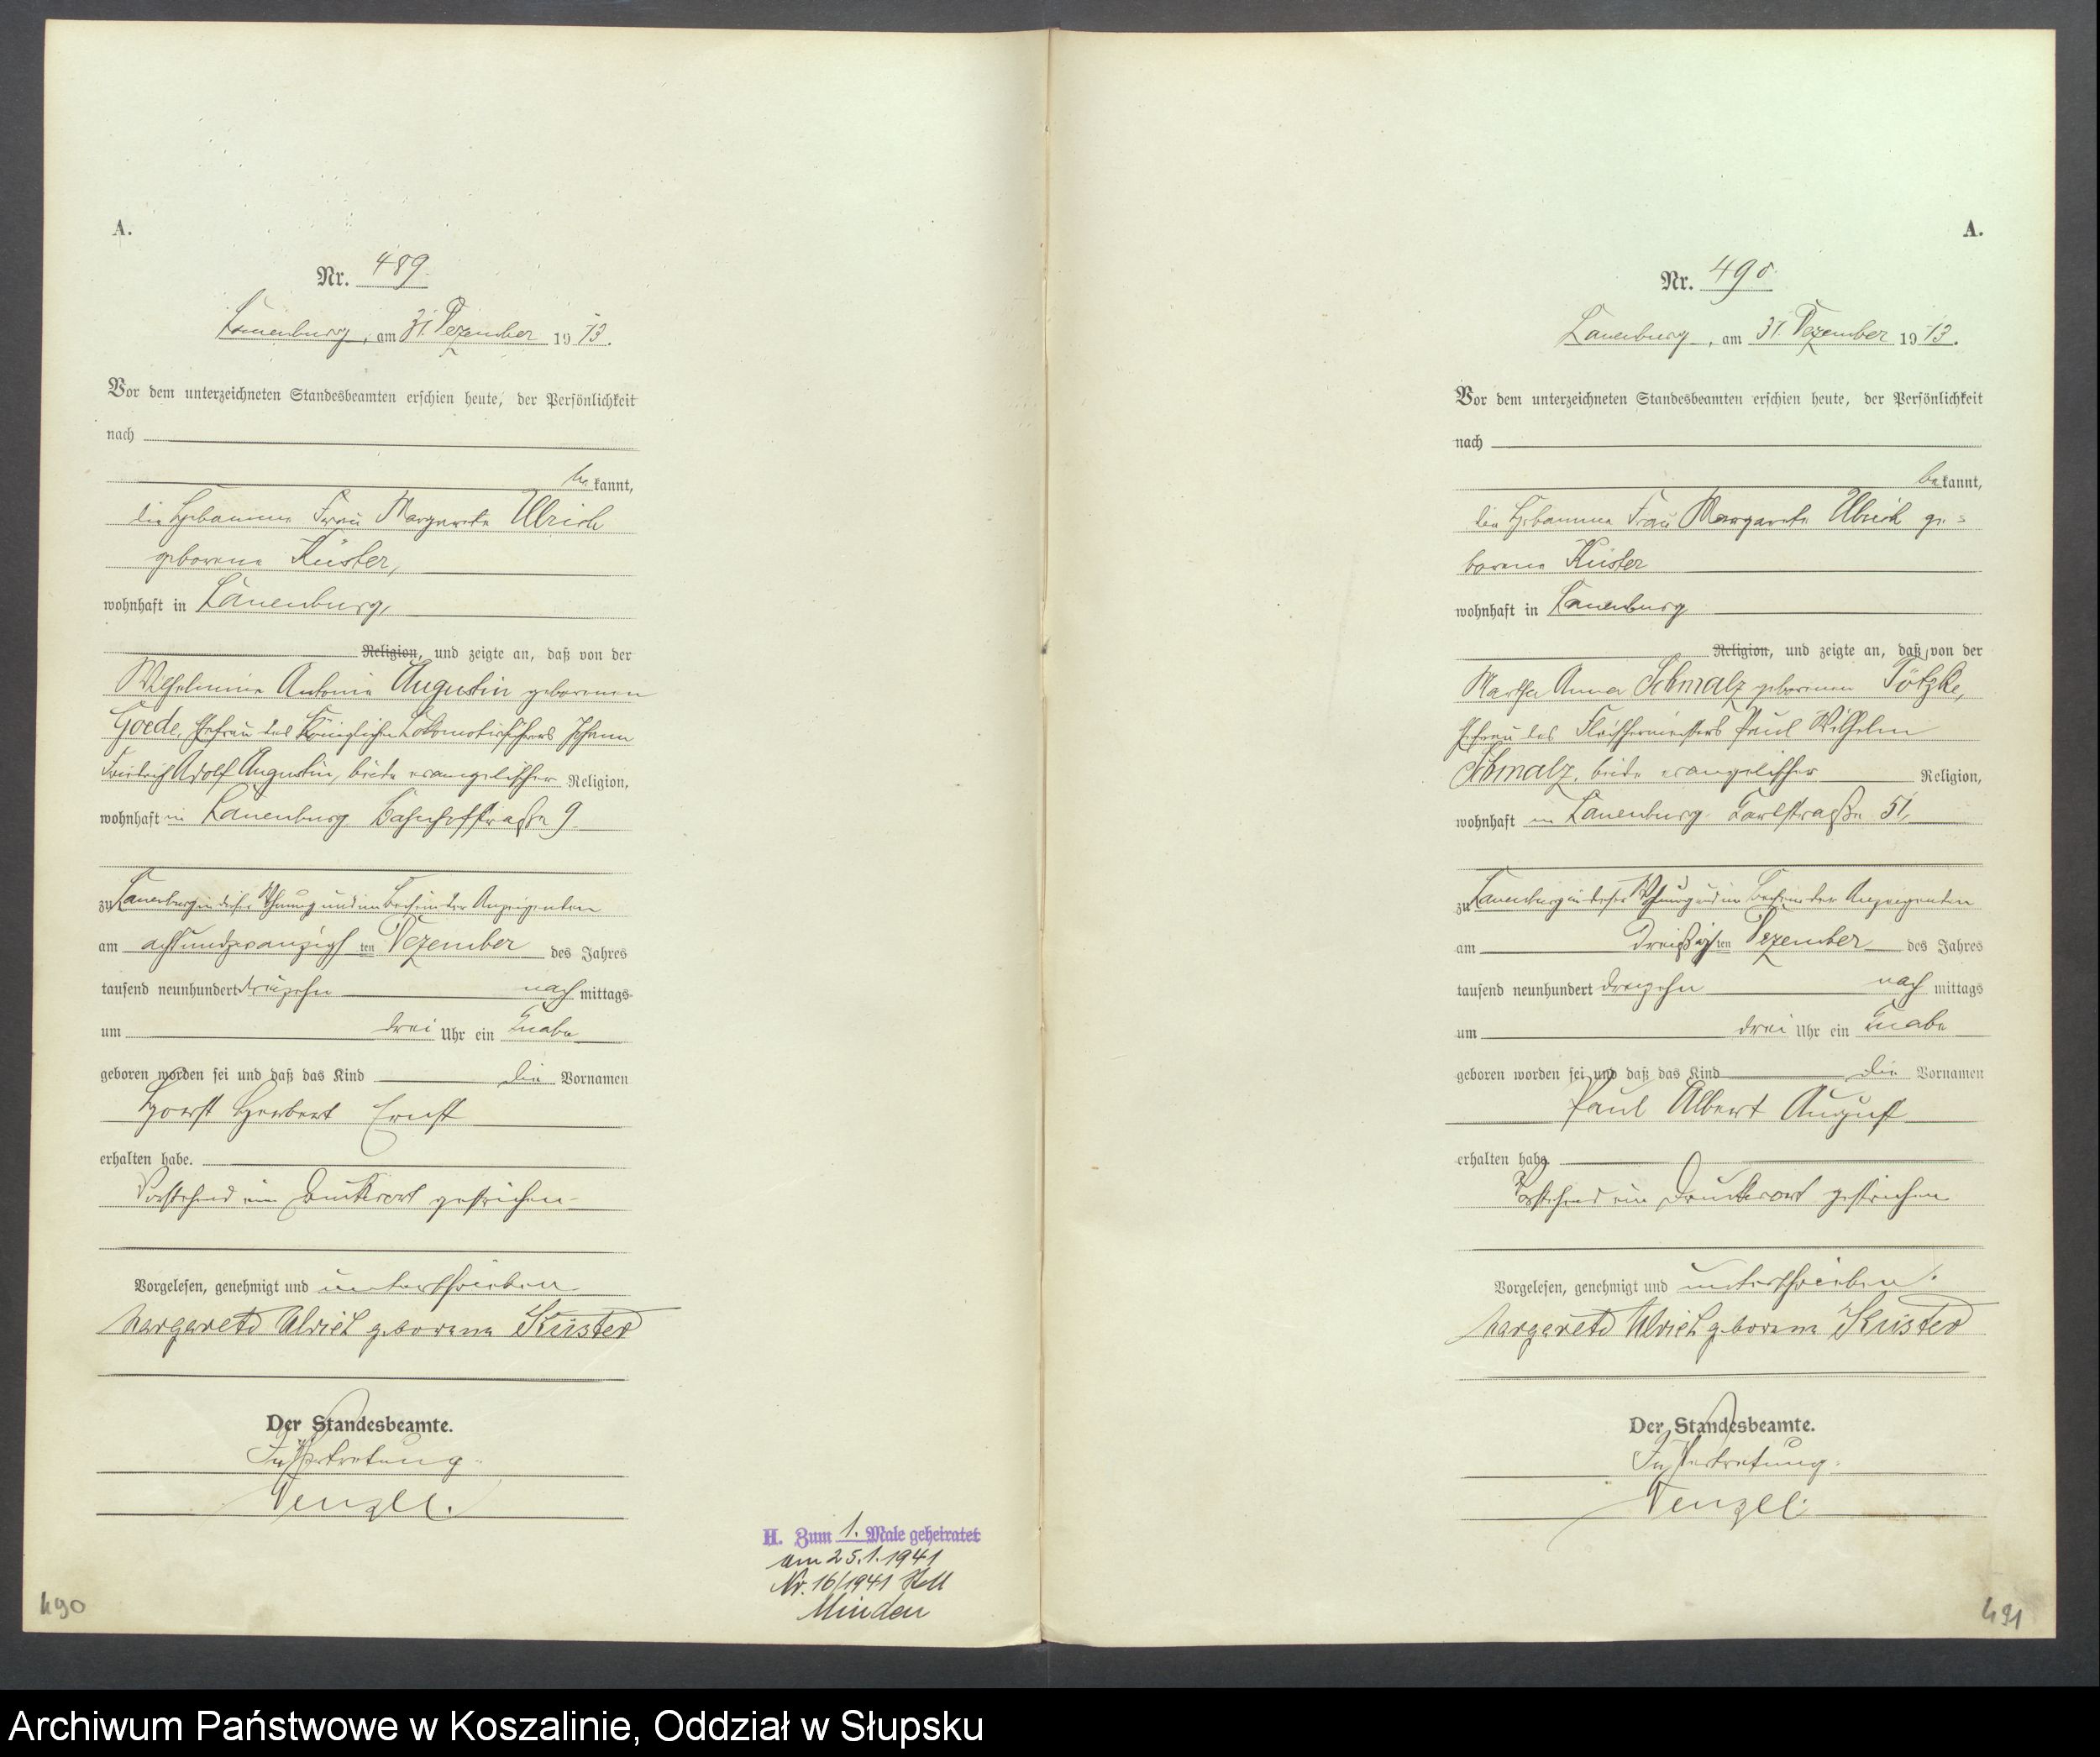 A.
Nr. 489.
Lauenburg, am 31. Dezember 1913.
Vor dem unterzeichneten Standesbeamten erschien heute, der Persönlichkeit
nach
bekannt,
die Hebamme Frau Margarete Ulrich
geborene Küster,
wohnhaft in Lauenburg,
Religion, und zeigte an, daß von der
Wilhelmine Antonie Augustin geborenen
Goede, Ehefrau des Königlichen Lokomotivführers Johann
Friedrich Adolf Augustin, beide evangelischer Religion,
wohnhaft in Lauenburg Bahnhofstraße 9.
zu Lauenburg in dieser Wohnung und im Beisein der Anzeigenden
am achtundzwanzigsten Dezember des Jahres
tausend neunhundert dreizehn nachmittags
um drei Uhr ein Knabe
geboren worden sei und daß das Kind die Vornamen
Horst Herbert Ernst
erhalten habe.
Vorstehend ein Druckwort gestrichen.
Vorgelesen, genehmigt und unterschrieben
Margarete Ulrich geborene Küster
Der Standesbeamte.
In Vertretung.
Wenzel.
H. Zum 1. Male geheiratet
am 25.1.1941
Nr. 16/1941
Minden
490
A.
Nr. 490.
Lauenburg, am 31. Dezember 1913.
Vor dem unterzeichneten Standesbeamten erschien heute, der Persönlichkeit
nach
bekannt,
die Hebamme Frau Margarete Ulrich ge=
borene Küster
wohnhaft in Lauenburg
Religion, und zeigte an, daß von der
Martha Anna Schmalz geborenen Tötzke,
Ehefrau des Fleischermeisters Paul Wilhelm
Schmalz, beide evangelischer Religion,
wohnhaft in Lauenburg. Karlstraße 51,
zu Lauenburg in dieser Wohnung und im Beisein der Anzeigenden
am dreißigsten Dezember des Jahres
tausend neunhundert dreizehn nachmittags
um drei Uhr ein Knabe
geboren worden sei und daß das Kind die Vornamen
Paul Albert August
erhalten habe
Vorstehend ein Druckwort gestrichen.
Vorgelesen, genehmigt und unterschrieben.
Margarete Ulrich geborene Küster
Der Standesbeamte.
In Vertretung.
Wenzel.
491
Archiwum Państwowe w Koszalinie, Oddział w Słupsku